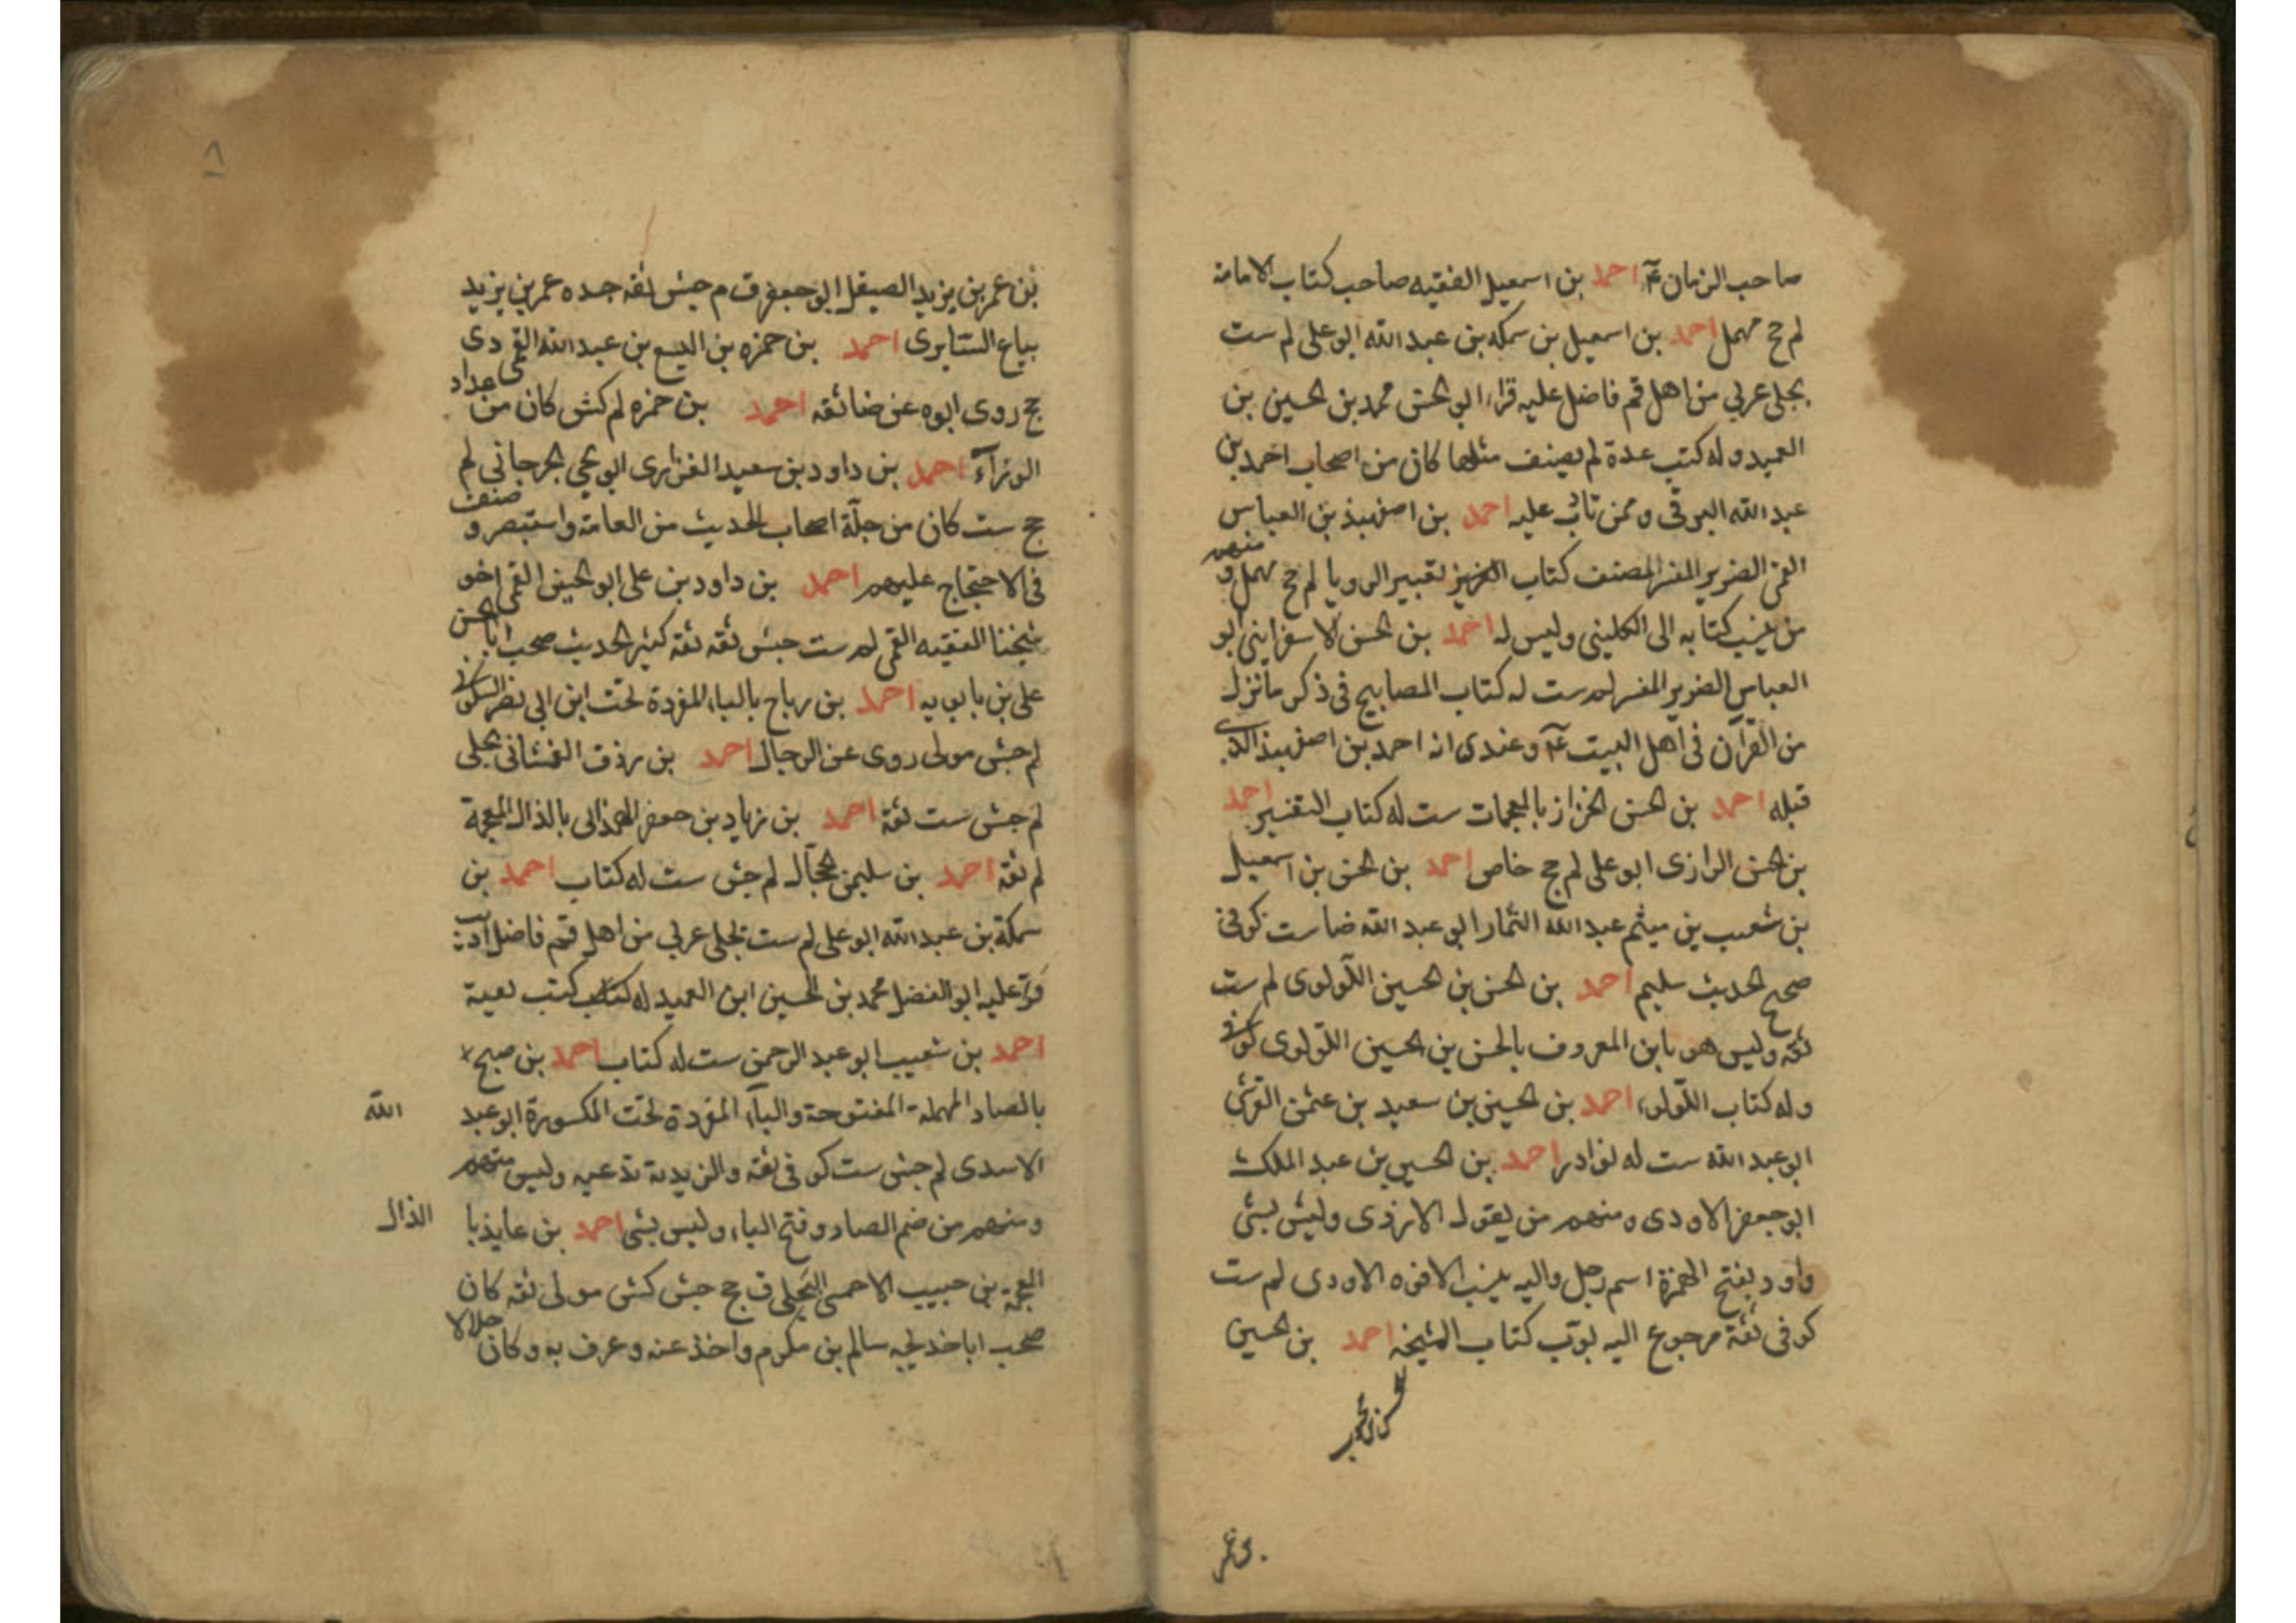 صاحب الزمان عم احمد بن اسمعيل الفقيه صاحب كتاب الامامة
لم جح مهمل احمد بن اسمعيل بن سمكه بن عبد الله ابو على لم ست
بجلى عربى من اهل قم فاضل عليه قراء ابو الحسن محمد بن الحسين بن
العميد وله كتب عدة لم يصنف مثلها كان من اصحاب احمد بن
عبد الله البرقى وممن تادب عليه احمد بن اصفهبذ بن العباس
القمى الضرير المفسر المصنف كتاب تعبير الرويا لم جح مهمل ومنهم
من ينسب كتابه الى الكلينى وليس له احمد بن الحسن الاسفراينى ابو
العباس الضرير المفسر لم ست له كتاب المصابيح فى ذكر ما نزل
من القرآن فى اهل البيت عم وعندى انه احمد بن اصفهبذ الذى
قبله احمد بن الحسن الخزاز بالمعجمات ست له كتاب التفسير احمد
بن الحسن الرازى ابو على لم جح خاص احمد بن الحسن بن اسمعيل
بن شعيب بن ميثم عبد الله التمار ابو عبد الله ضا ست كوفى
صحيح الحديث سليم احمد بن الحسن بن الحسين اللولوى لم ست
ثقه وليس هو بابن المعروف بالحسن بن الحسين اللولوى كوفى
وله كتاب اللولوء احمد بن الحسين بن سعيد بن عثمن القرشى
ابو عبد الله ست له نوادر احمد بن الحسين بن عبد الملك
ابو جعفر الاودى ومنهم من يقول الازدى وليس بشئ
واود بفتح الهمزة اسم رجل واليه ينسب الافوه الاودى لم ست
كوفى ثقة مرجوع اليه بوب كتاب المشيخه احمد بن الحسين
بن عمر
٨
بن عمر بن يزيد الصيقل ابو جعفر ق م جش ثقه جده عمر بن يزيد
بياع السابرى احمد بن حمزه بن اليسع بن عبد الله القمى دى
جح روى ابوه عن ضا ثقه احمد بن حمزه لم كش كان من عداد
الوزرآء احمد بن داود بن سعيد الفزارى ابو يحيى الجرجانى لم
جح ست كان من جلة اصحاب الحديث من العامة واستبصر وصنف
فى الاحتجاج عليهم احمد بن داود بن على ابو الحسين القمى اخو
شيخنا الفقيه القمى لم ست جش ثقه ثقه كثير الحديث صحب ابا الحسن
على بن بابويه احمد بن رباح بالباء المفردة تحت ابن ابى نصر السكونى
لم جش مولى روى عن الرجال احمد بن رزق الغمشانى بجلى
لم جش ست ثقة احمد بن زياد بن جعفر الهمذانى بالذال المعجمة
لم ثقه احمد بن سليمن الحجال لم جش ست له كتاب احمد بن
سمكة بن عبد الله ابو على لم ست بجلى عربى من اهل قم فاضل اديب
قرء عليه ابو الفضل محمد بن الحسين ابن العميد له كتب
احمد بن شعيب ابو عبد الرحمن ست له كتاب احمد بن صبيح
بالصاد المهملة المفتوحة والبآء المفردة تحت المكسورة ابو عبد الله
الاسدى لم جش ست كوفى ثقه والزيدية تدعيه وليس منهم
ومنهم من ضم الصاد وفتح الباء وليس بشئ احمد بن عايذ بالذال
المعجمة بن حبيب الاحمسى البجلى ق جح جش كش مولى ثقه كان
صحب ابا خديجه سالم بن مكرم واخذ عنه وعرف به وكان حلالا